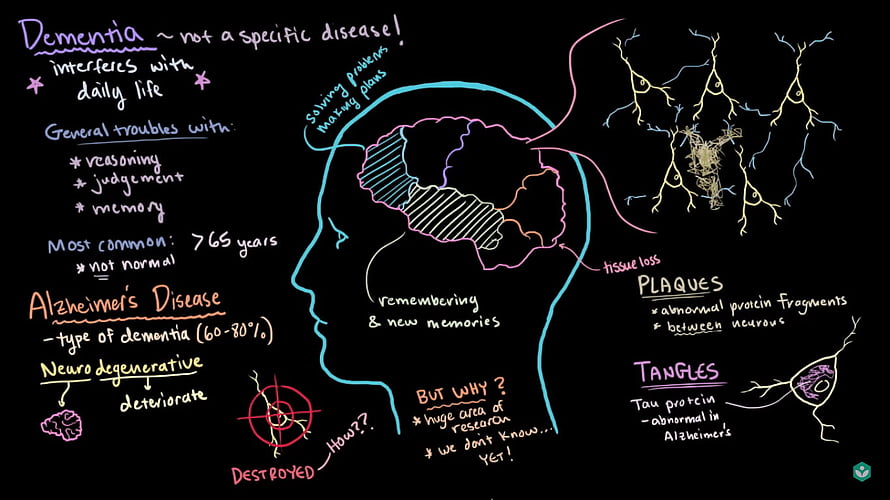 Dementia ~ not a specific disease!
* interferes with *
daily life
General troubles with:
* reasoning
* judgement
* memory
Most common: >65 years
* not normal
Alzheimer's Disease
- type of dementia (60-80%)
Neurodegenerative
deteriorate
DESTROYED
How??
solving problems
making plans
remembering
& new memories
tissue loss
BUT WHY?
* huge area of
research
* we don't know...
YET!
PLAQUES
* abnormal protein fragments
* between neurons
TANGLES
Tau protein
- abnormal in
Alzheimer's